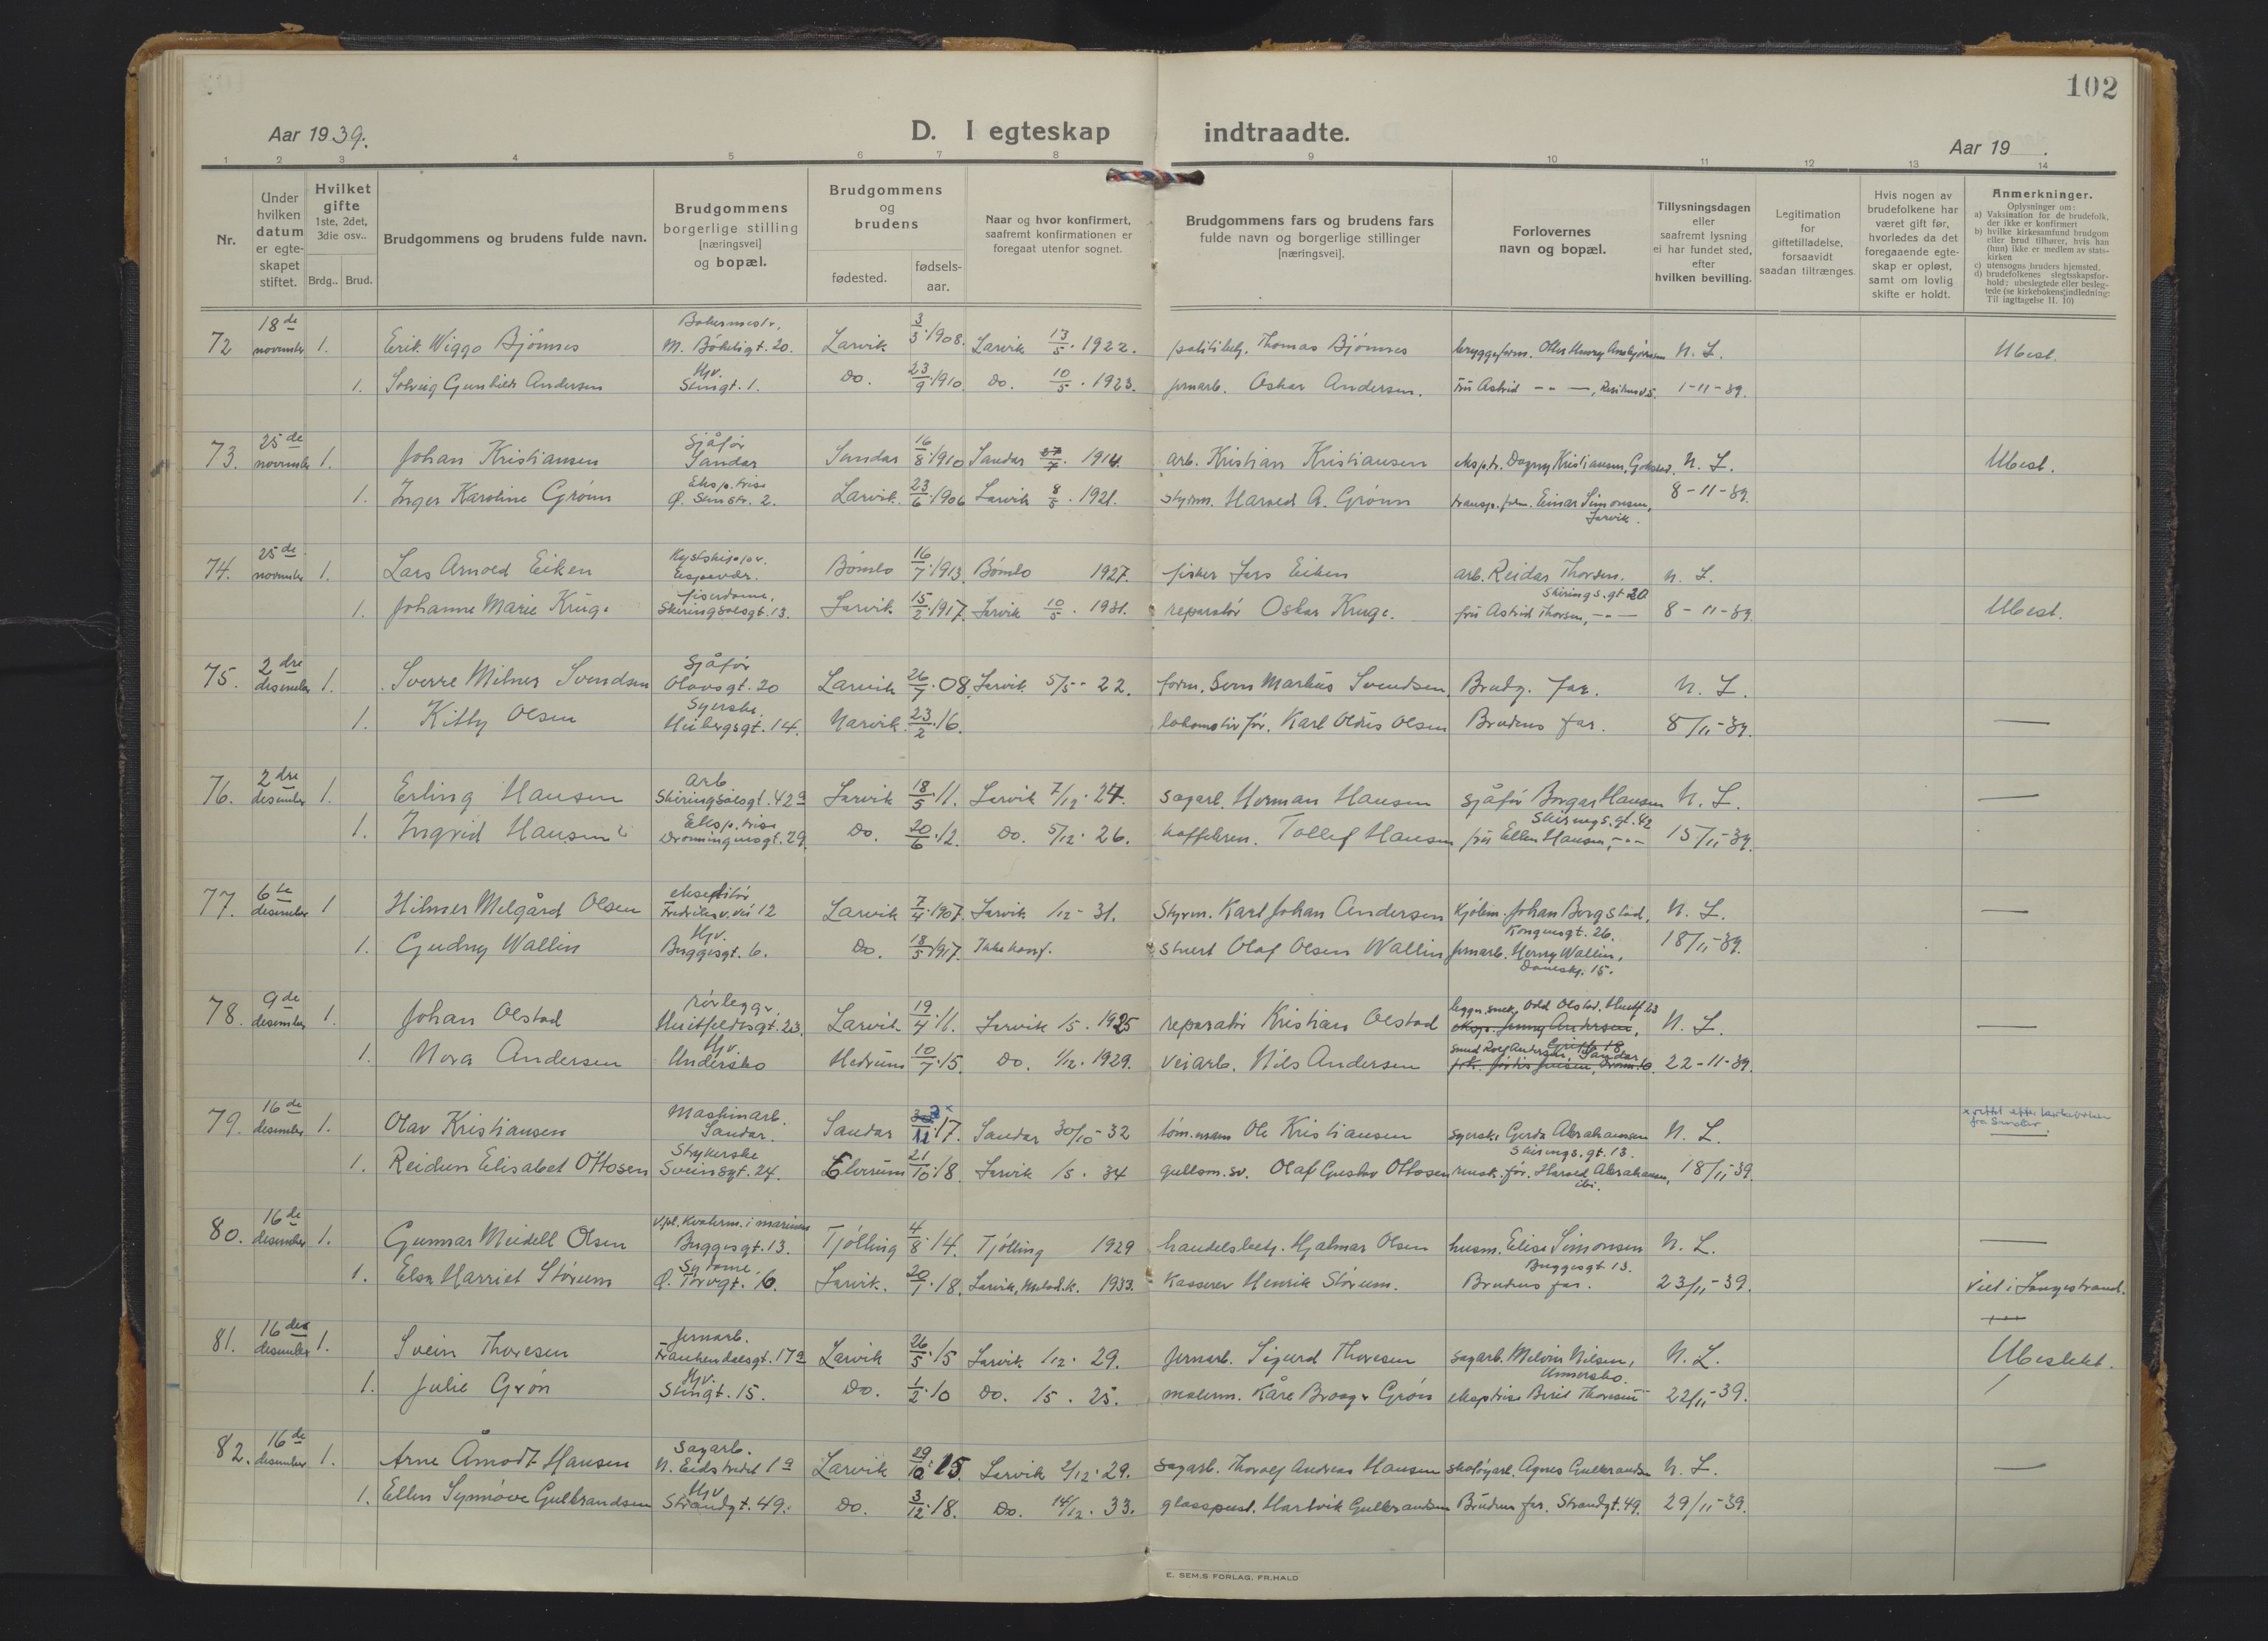 102
Aar 1939.
D. I egteskap indtraadte.
Aar 19 .
1 2 3 4 5 6 7 8 9 10 11 12 13 14
Nr.
Under hvilken datum er egte-skapet stiftet.
Hvilket gifte 1ste, 2det, 3die osv..
Brdg.. Brud.
Brudgommens og brudens fulde navn.
Brudgommens borgerlige stilling [næringsvei] og bopæl.
Brudgommens og brudens
fødested.
fødsels-aar.
Naar og hvor konfirmert, saafremt konfirmationen er foregaat utenfor sognet.
Brudgommens fars og brudens fars fulde navn og borgerlige stillinger [næringsvei].
Forlovernes navn og bopæl.
Tillysningsdagen eller saafremt lysning ei har fundet sted, efter hvilken bevilling.
Legitimation for giftetilladelse, forsaavidt saadan tiltrænges.
Hvis nogen av brudefolkene har været gift før, hvorledes da det foregaaende egte-skap er opløst, samt om lovlig skifte er holdt.
Anmerkninger.
Oplysninger om:
a) Vaksination for de brudefolk, der ikke er konfirmert
b) hvilke kirkesamfund brudgom eller brud tilhører, hvis han (hun) ikke er medlem av stats-kirken
c) utensogns bruders hjemsted.
d) brudefolkenes slegtsskapsfor-hold: ubeslegtede eller besleg-tede (se kirkebokens indledning: Til iagttagelse II. 10)
18de Bakermestr.
72 november 1. Erik Wiggo Bjönnes M. Bökeligt. 20. Larvik 3/3.1908. Larvik 13/5. 1922. politibetj. Thomas Bjönnes bryggeform. Henry N. L. Ubesl.
Hjv.
1. Solveig Gunhild Andersen Steingt. 1. Do. 23/9.1910. Do. 10/5. 1923. jernarb. Oskar Andersen. Fru Astrid -"- 1-11-39.
25de Sjåför
73. november 1. Johan Kristiansen Sandar Sandar 16/8.1910 Sandar 1914. arb. Kristian Kristiansen eksp.tr. Dagny Kristiansen, Gokstad. N. L. Ubesl.
Eksp.trise
1. Inger Karoline Grönn Ø. Steinstr. 2. Larvik. 23/6.1906 Larvik 8/5. 1921. styrm. Harald A. Grönn transp.form. Einar Simonsen, 8-11-39.
Larvik.
25de
74. november 1. Lars Arnold Eiken Bömlo 16/7.1913. Bömlo 1927. fisker Lars Eiken arb. Reidar Thorsen. N. L.
Skirings.gt 20
1. Johanne Marie Kruge Skiringsalsgt. 13. Larvik 15/2.1917. Larvik 10/5. 1931. reparatör Oskar Kruge. fru Astrid Thorsen, -"- 8-11-39. Ubesl.
2dre Sjåför
75. desember 1. Sverre Milner Svendsen Olavsgt. 20 Larvik 26/7.08. Larvik 5/5-22. form. Sven Markus Svendsen Brudg. far. N. L.
Syerske.
1. Kitty Olsen Heibergsgt. 14. Narvik. 23/2.16. lokomotivför. Karl Oldus Olsen Brudens far. 8/11-39. —
2dre arb
76. desember 1. Erling Hansen Skiringsalsgt. 42a Larvik 18/5.11. Larvik 7/12.24. sagarb. Herman Hansen sjåför Borgar Hansen N. L. —
Eksp.trise Skirings.gt. 42
1. Ingrid Hansen Dronningensgt. 29. Do. 20/6.12. Do. 5/12.26. kaffebren. Tollef Hansen fru Ellen Hansen, -"- 15/11-39.
6te ekspeditör
77. desember 1 Hilmer Melgård Olsen Fredriksv. vei 12 Larvik 7/4.1907. Larvik 1/12-31. Styrm. Karl Johan Andersen Kjölem. Johan Bergstad, N. L. —
Hjv. Kongensgt. 26.
1. Gudny Wallin Bryggesgt. 6. Do. 18/5.1917. Ikke konf. stuert Olaf Olsen Wallin jernarb. Henry Wallin, 18/11-39.
15.
9de rörlegger odd Olstad.
78. desember 1. Johan Olstad Huitfeldtsgt. 23. Larvik 19/4.11. Larvik 15. 1925 reparatör Kristian Olstad eksp. Jenny Andersen, N. L. —
Hjv.
1. Nora Andersen Undersbo Hedrum 10/7.15. Do. 1/12. 1929. veiarb. Nils Andersen smed Rolf Andersen, Sandar 22-11-39.
16de Maskinarb. x rettet efter
79. desember 1. Olav Kristiansen Sandar. Sandar 11.17. Sandar 30/10-32 töm.mann Ole Kristiansen syerske Gerda Abrahamsen N. L.
Strykerske Skirings.gt. 13.
1. Reidun Elisabet Ottosen Sveinsgt. 24. Elverum 21/10.18. Larvik 15. 34 gullsm.sv. Olaf Gustav Ottosen Harald Abrahamsen, 18/11-39.
ibi.
16de v.pl. Kvaterm. i marinen
80. desember 1. Gunnar Meidell Olsen Bryggesgt. 13. Tjölling 4/8.14. Tjölling 1929 handelsbetj. Hjalmar Olsen husm. Elise Simonsen N. L. —
Sydame. Bryggesgt 13.
1. Elsa Harriet Störum Ø. Torvgt. 6. Larvik. 20/7.18. Larvik, Metod.k. 1933. Kasserer Henrik Störum. Brudens far. 23/11-39. Viet i Langestrand.
16de Jernarb.
81. desember 1. Svein Thoresen Frankendalsgt. 17a Larvik 26/5.15 Larvik 1/12. 29. Jernarb. Sigurd Thoresen sagarb. Melvin Nilsen, N. L. Ubeslekt.
Hjv.
1. Julie Grön Steingt. 15. Do. 1/2.10 Do. 15. 25. malerm. Kåre Brager Grön eksptrise Beril Thoresen 22/11-39.
16de Sagarb.
82. desember 1. Arne Åmodt Hansen N. Eidstredet 1a Larvik 29/10.15 Larvik 2/12.29. sagarb. Thorolf Andreas Hansen skotöyarb. Agnes Gulbrandsen N. L. —
Hjv
1. Ellen Synnöve Gulbrandsen Strandgt. 49. Do. 3/12.18. Do. 14/12. 33. glasspust. Hartvik Gulbrandsen Brudens far. Strandgt. 49. 29/11-39.
E. SEM.S FORLAG, FR.HALD